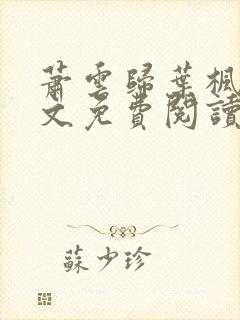 蕭雲歸葉楓
文免費閱讀
蘇少珍